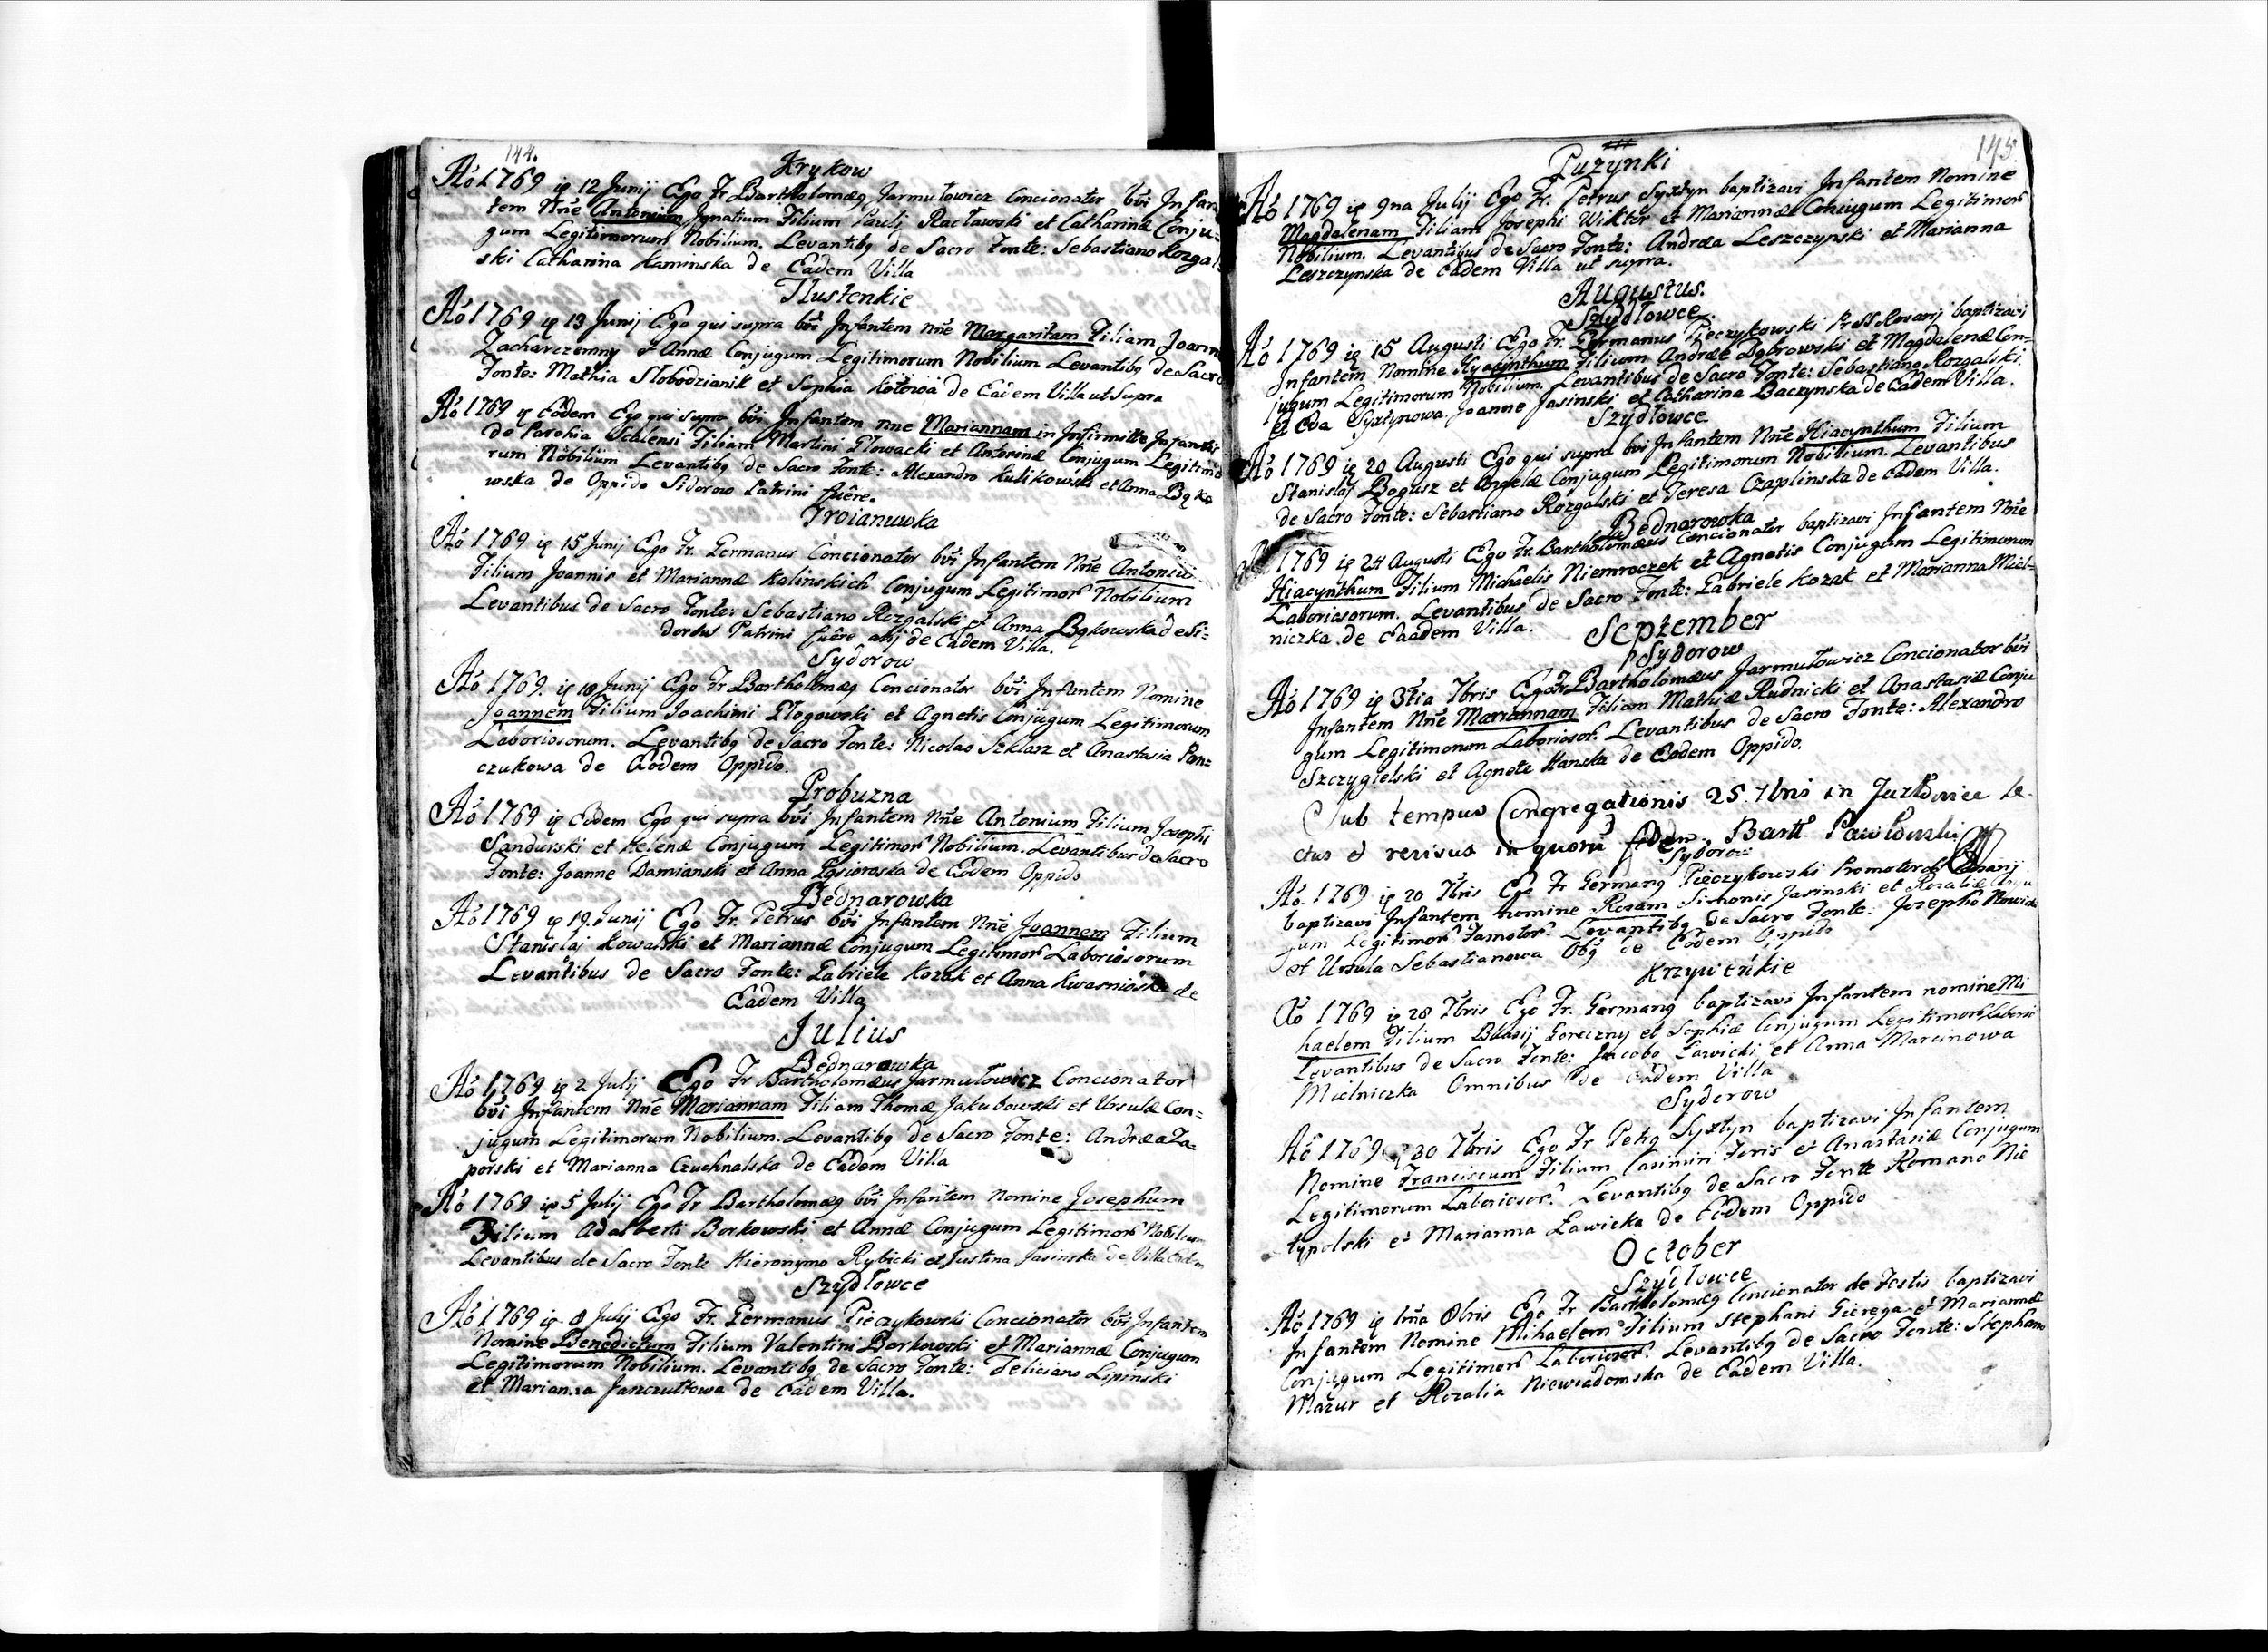 144.
Krykow
Aō 1769 iꝑ 12 Junij Ego Fr Bartholomæꝯ Jarmułowicz Concionator bvī Infan
tem Nn̄e Antonium Ignatium Filium Pauli Racławski et Catharinæ Conju-
gum Legitimorum Nobilium. Levantibꝯ de Sacro Fonte: Sebastiano Rozgal
ski Catharina Kaminska de Eadem Villa
Tlustenkie
Aō 1769 iꝑ 13 Junij Ego qui supra bvī Infantem nn̄e Margaritam Filiam Joann
Zacharczemny et Annæ Conjugum Legitimorum Nobilium Levantibꝯ de Sacro
Fonte: Mathia Slobodzianik et Sophia Kotowa de Eadem Villa ut Supra
Aō 1769 iꝑ Eodem Ego qui supra bvī Infantem nn̄e Mariannam in Infirmitte Infantis
de Parohia Filiam Martini Głowacki et Antoninæ Conjugum Legitimo
rum Nobilium Levantibꝯ de Sacro Fonte: Alexandro Kulikowski et Anna Bąko
wska de Oppido Sidorow Patrini fuêre.
Troianuwka
Aō 1769 iꝑ 15 Junij Ego Fr. Germanus Concionator bvī Infantem Nn̄e Antoniu
Filium Joannis et Mariannæ Kalinskich Conjugum Legitimor̄ Nobilium
Levantibus de Sacro Fonte: Sebastiano Rozgalski et Anna Bąkowska de Si=
dorow Patrini fuêre alij de Eadem Villa.
Sydorow
Aō 1769. iꝑ 18 Junij Ego Fr Bartholomæꝯ Concionator bvī Infantem Nomine
Joannem Filium Joachimi Głogowski et Agnetis Conjugum Legitimorum
Laboriosorum. Levantibꝯ de Sacro Fonte: Nicolao Szklarz et Anastasia Pan=
czukowa de Eodem Oppido.
Probuzna
Aō 1769 iꝑ Eodem Ego qui supra bvī Infantem Nn̄e Antonium Filium Josephi
Sandurski et Helenæ Conjugum Legitimor̄ Nobilium. Levantibus de Sacro
Fonte: Joanne Damianski et Anna Gąsiorowska de Eodem Oppido
Bednarowka
Aō 1769 iꝑ 19. Junij Ego Fr. Petrus bvī Infantem Nn̄e Joannem Filium
Stanislaj Kowalski et Mariannæ Conjugum Legitimor̄ Laboriosorum
Levantibus de Sacro Fonte: Gabriele Kozak et Anna Kwasnioska de
Eadem Villa
Julius
Bednarowka
Aō 1769 iꝑ 2 Julij Ego Fr Bartholomæus Jarmułowicz Concionator
bvī Infantem Nn̄e Mariannam Filiam Thomæ Jakubowski et Ursulæ Con=
jugum Legitimorum Nobilium. Levantibꝯ de Sacro Fonte: Andræa Za-
porski et Marianna Czuchnalska de Eadem Villa
Aō 1769 iꝑ 5 Julij Ego Fr Bartholomæꝯ bvī Infantem Nomine Josephum
Filium Adalberti Borkowski et Annæ Conjugum Legitimor̄ Nobilium
Levantibus de Sacro Fonte Hieronymo Rybicki et Justina Jasinska de Villa Eadem
Szydłowce
Aō 1769 iꝑ 8 Julij Ego Fr. Germanus Pieczykowski Concionator bvī Infantem
Nomine Benedictum Filium Valentini Borkowski et Mariannæ Conjugum
Legitimorum Nobilium. Levantibꝯ de Sacro Fonte: Feliciano Lipinski
et Marianna Janczuttowa de Eadem Villa.
145
Puzynki
Aō 1769 iꝑ 9na Julij Ego Fr. Petrus Syxtyn baptizavi Infantem Nomine
Magdalenam Filiam Josephi Wiktor et Mariannæ Coniugum Legitimor̄
Nobilium. Levantibus de Sacro Fonte: Andræa Leszczynski et Marianna
Leszczynska de Eadem Villa ut supra.
Augustus.
Szydłowce.
Aō 1769 iꝑ 15 Augusti Ego Fr. Germanus Pieczykowski Pr SS Rosarij baptizavi
Infantem Nomine Hyacinthum Filium Andræe Dąbrowski et Magdalenæ Con=
jugum Legitimorum Nobilium. Levantibus de Sacro Fonte: Sebastiano Rozgalski.
et Eva Syxtynowa. Joanne Jasinski et Catharina Baczynska de Eadem Villa.
Szydłowce
Aō 1769 iꝑ 20 Augusti Ego qui supra bvī Infantem Nn̄e Hiacynthum Filium
Stanislaj Bogusz et Angelæ Conjugum Legitimorum Nobilium. Levantibus
de Sacro Fonte: Sebastiano Rozgalski et Teresa Czaplinska de Eadem Villa.
Bednarowka
1769 iꝑ 24 Augusti Ego Fr. Bartholomæus Concionator baptizavi Infantem Nn̄e
Hiacynthum Filium Michaelis Niemroczek et Agnetis Conjugum Legitimorum
Laboriosorum. Levantibus de Sacro Fonte: Gabriele Kozak et Marianna Miel-
niczka de Eaadem Villa.
September
Sydorow
Aō 1769 iꝑ 3tia 7bris Ego Fr Bartholomæus Jarmułowicz Concionator bvī
Infantem Nn̄e Mariannam Filiam Mathiæ Rudnicki et Anastasiæ Conju
gum Legitimorum Laboriosor̄. Levantibus de Sacro Fonte: Alexandro
Szczygielski et Agnete Hanska de Eodem Oppido.
Sub tempus Congregationis 25. 7bris in Jazłowice Le-
ctus et revisus in quorū fidem. Barth. Pawłowski
Sydorow
Aō. 1769 iꝑ 20 7bris Ego Fr Germanꝯ Pieczykowski Promotor SS Rosarij
baptizavi Infantem nomine Rosam Simonis Jasinski et Rosaliæ Conju
gum Legitimor̄ Famator̄. Levantibꝯ de Sacro Fonte: Josepho Nowicki
et Ursula Sebastianowa Obꝯ de Eodem Oppido
Krzywenkie
Aō 1769 iꝑ 28 7bris Ego Fr. Germanꝯ baptizavi Infantem nomine Mi
haelem Filium Blasij Goreczny et Sophiæ Conjugum Legitimor̄ Labori
Levantibus de Sacro Fonte: Jacobo Ławicki et Anna Marcinowa
Mielniczka Omnibus de Eadem Villa
Sydorow
Aō 1769 iꝑ 30 7bris Ego Fr Petrꝯ Syxtyn baptizavi Infantem
Nomine Franciscum Filium Casimiri Foris et Anastasiæ Conjugum
Legitimorum Laboriosor̄. Levantibꝯ de Sacro Fonte Romano Nie
typolski et Marianna Ławicka de Eodem Oppido
October
Szydłowce
Aō 1769 iꝑ 1ma 8bris Ego Fr Bartholomæꝯ Concionator de Festis baptizavi
Infantem Nomine Mihaelem Filium Stephani Gieręga et Mariannæ
Conjugum Legitimor̄ Laboriosor̄. Levantibꝯ de Sacro Fonte: Stephano
Mazur et Rozalia Niewiadomska de Eadem Villa.